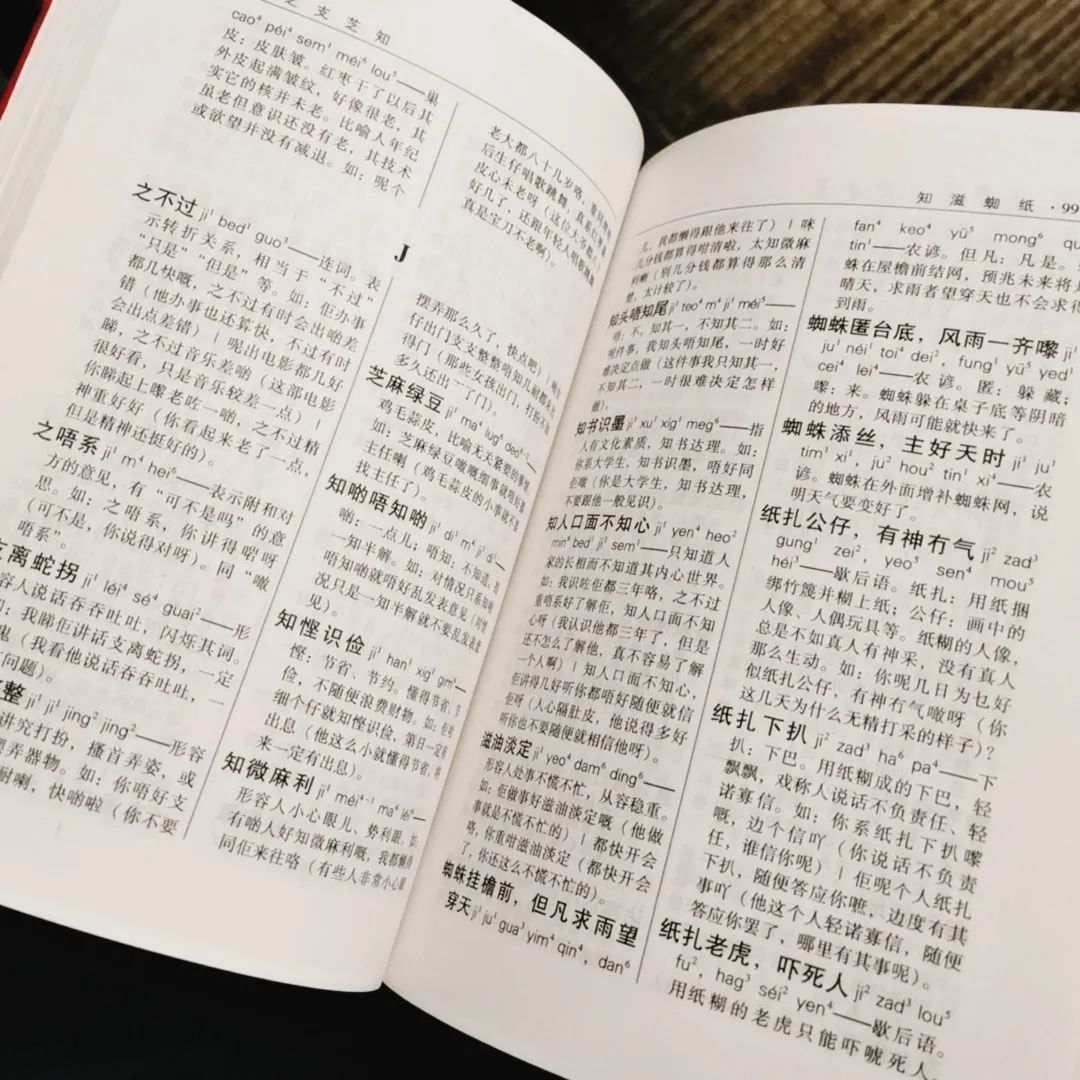 之 支 芝 知
cao⁴ péi⁴ sem¹ méi⁶ lou⁵——果
皮：皮肤皱。红枣干了以后其
外皮起满皱纹，好像很老，其
实它的核并未老。比喻人年纪
虽老但意识还没有老，其技术
或欲望并没有减退。如：呢个
老大都八十几岁咯，重同
后生仔唱歌跳舞，真系红枣
皮心未老呀（这位大爷都八十
好几了，还跟年轻人唱歌跳舞，
真是宝刀不老啊）。
J
之不过 ji¹ bed¹ guo³——连词。表
示转折关系，相当于“不过”
“只是”“但是”等。如：佢办事
都几快嘅，之不过有时会出啲差
错（他办事也还算快，不过有时
会出点差错）｜呢出电影都几好
睇，之不过音乐差啲（这部电影
很好看，只是音乐较差一点）｜
你睇起上嚟老咗一啲，之不过精
神重好好（你看起来老了一点，
但是精神还挺好的）。
之唔系 ji¹ m⁴ hei⁶——表示附和对
方的意见，有“可不是吗”的意
思。如：之唔系，你讲得啱呀
（可不是，你说得对呀）。同“噉
唔系”。
支离蛇拐 ji¹ léi⁴ sé⁴ guai²——形
容人说话吞吞吐吐，闪烁其词。
如：我睇佢讲话支离蛇拐，一定
鬼（我看他说话吞吞吐吐，一
问题）。
整 ji¹ ji¹ jing² jing²——形容
讲究打扮，搔首弄姿，或
摆弄器物。如：你唔好支
耐喇，快啲啦（你不要
摆弄那么久了，快点吧）｜
仔出门支支整整唔知几耐都未
得门（那些女孩出门，打扮不知
多久还出了门）。
芝麻绿豆 ji¹ ma⁴ lug⁶ deo⁶⁻²——
鸡毛蒜皮，比喻无关紧要的事情。
如：芝麻绿豆噉嘅细事就唔好
主任喇（鸡毛蒜皮的小事就不要
找主任了）。
知啲唔知啲 ji¹ di¹ m⁴ ji¹ di¹——
啲：一点儿；唔知：不知道。指
一知半解。如：对情况只系知啲
唔知啲就唔好乱发表意见（对情
况只是一知半解就不要乱发表意
见）。
知悭识俭 ji¹ han¹ xig¹ gim⁶——
悭：节省、节约。懂得节省，节
俭，不随便浪费财物。如：佢咁
细个仔就知悭识俭，第日一定有
出息（他这么小就懂得节省，将
来一定有出息）。
知微麻利 ji¹ méi⁴⁻¹ ma⁴ léi⁶——
形容人小心眼儿、势利眼。如：
有啲人好知微麻利嘅，我都懒得
同佢来往咯（有些人非常小心眼
知 滋 蜘 纸 ·99
儿，我都懒得跟他来往了）｜咪
几分钱都算得咁清啦，太知微麻
利喇（别几分钱都算得那么清
楚，太计较了）。
知头唔知尾 ji¹ teo⁴ m⁴ ji¹ méi⁵——
唔：不。知其一，不知其二。如：
呢件事，我知头唔知尾，一时好
难决定点做（这件事我只知其一，
不知其二，一时很难决定怎样
做）。
知书识墨 ji¹ xu¹ xig¹ meg⁶——指
人有文化素质，知书达理。如：
你系大学生，知书识墨，唔好同
佢嗷（你是大学生，知书达理，
不要跟他一般见识）。
知人口面不知心 ji¹ yen⁴ heo²
min⁶ bed¹ ji¹ sem¹——只知道人
家的长相而不知道其内心世界。
如：我识咗佢都三年咯，之不过
重唔系好了解佢，知人口面不知
心呀（我认识他都三年了，但是
还不怎么了解他，真不容易了解
一个人啊）｜知人口面不知心，
佢讲得几好听你都唔好随便就信
佢呀（人心隔肚皮，他说得多好
听你也不要随便就相信他呀）。
滋油淡定 ji¹ yeo⁴ dam⁶ ding⁶——
形容人处事不慌不忙，从容稳重。
如：佢做事好滋油淡定嘅（他做
事就是不慌不忙的）｜都快开会
咯，你重咁滋油淡定（都快开会
了，你还这么不慌不忙的）。
蜘蛛挂檐前，但凡求雨望
穿天 ji¹ ju¹ gua³ yim⁴ qin⁴，dan⁶
fan⁴ keo⁴ yü⁵ mong⁶
tin¹——农谚。但凡：凡是。
蛛在屋檐前结网，预兆未来将是
晴天，求雨者望穿天也不会求得
到雨。
蜘蛛匿台底，风雨一齐嚟 ji¹
ju¹ néi¹ toi⁴ dei²，fung¹ yü⁵ yed¹
cei⁴ lei⁴——农谚。匿：躲藏；
嚟：来。蜘蛛躲在桌子底等阴暗
的地方，风雨可能就快来了。
蜘蛛添丝，主好天时 ji¹ ju¹
tim¹ xi¹，ju² hou² tin¹ xi⁴——农
谚。蜘蛛在外面增补蜘蛛网，说
明天气要变好了。
纸扎公仔，有神冇气 ji² zad³
gung¹ zei²，yeo⁵ sen⁴ mou⁵
héi³——歇后语。纸扎：用纸捆
绑竹篾并糊上纸；公仔：画中的
人像、人偶玩具等。纸糊的人像，
总是不如真人有神采，没有真人
那么生动。如：你呢几日为乜好
似纸扎公仔，有神冇气噉呀（你
这几天为什么无精打采的样子）？
纸扎下扒 ji² zad³ ha⁶ pa⁴——下
扒：下巴。用纸糊成的下巴，轻
飘飘，戏称人说话不负责任、轻
诺寡信。如：你系纸扎下扒嚟
嘅，边个信吖（你说话不负责
任，谁信你呢）｜佢呢个人纸扎
下扒，随便答应你嗻，边度有其
事吖（他这个人轻诺寡信，随便
答应你罢了，哪里有其事呢）。
纸扎老虎，吓死人 ji² zad³ lou⁵
fu²，hag³ séi² yen⁴——歇后语。
用纸糊的老虎只能吓唬死人，